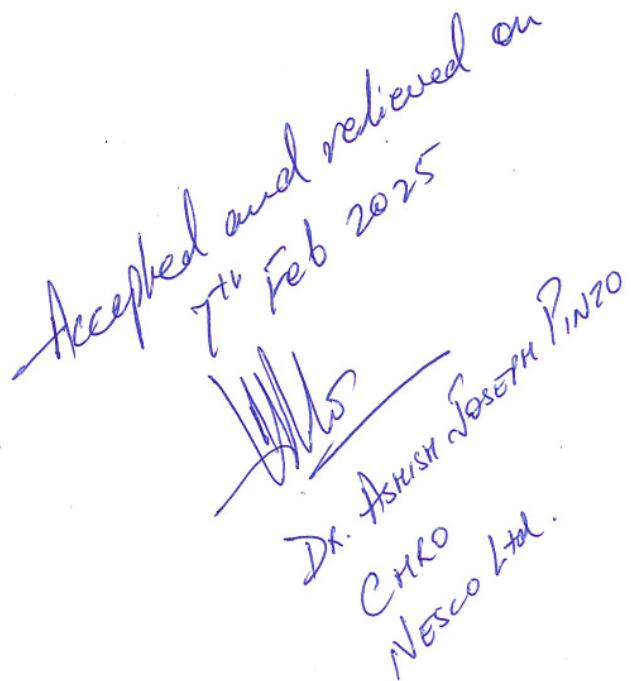 Accepted and relieved on
7th Feb 2025
Dr. ASHISH JOSEPH PINTO
CHRO
NESCO Ltd.